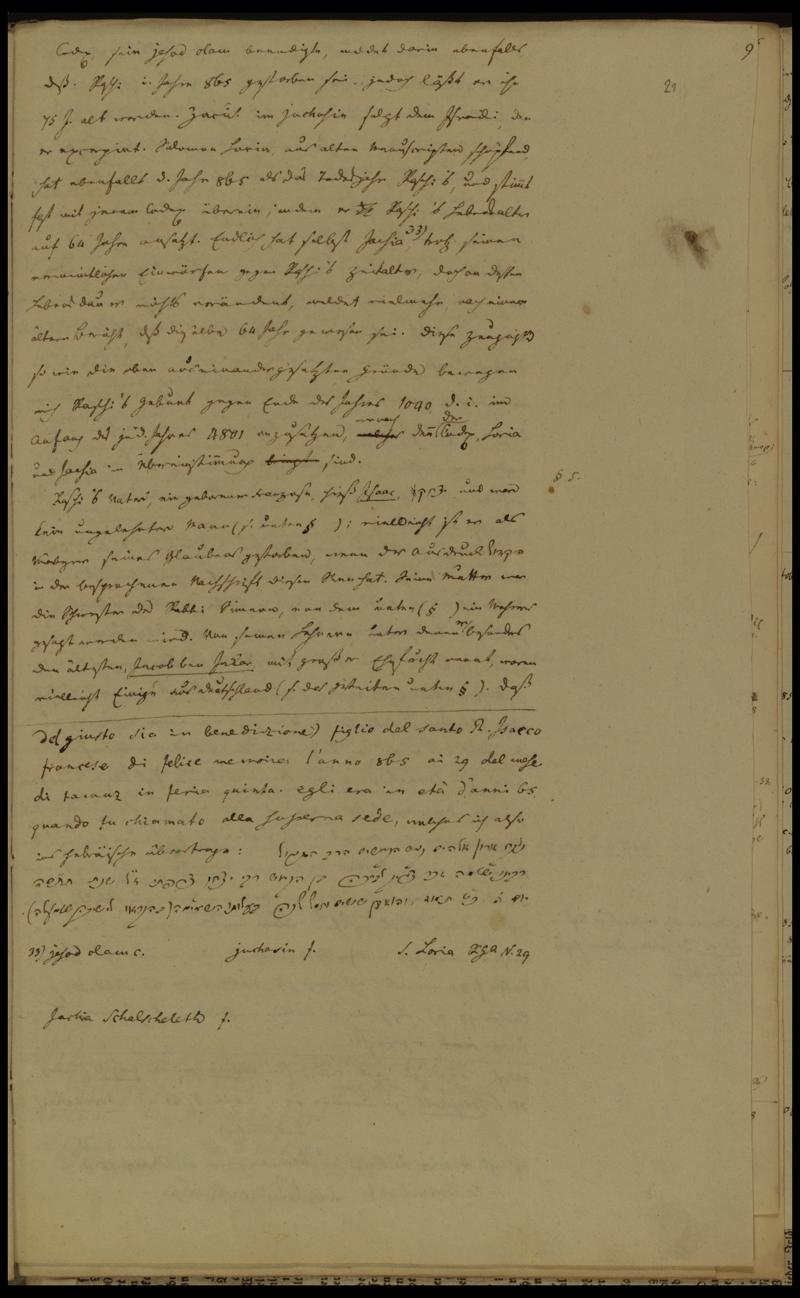 9
21
Codex sein jesod olam beendigte, meldet darin ebenfalls
daß Raschi i. Jahre 865 gestorben sei. jedoch läßt er ihn
75 J. alt werden. Zacut im jochasin folgt dem Israeli, den
er excerpirt. Salomon Loria, aus alten Manuscripten schöpfend,
hat ebenfalls d. Jahr 865 als das Todesjahr Raschi's, und stimmt
fast mit jenem Codex überein, indem er Raschi's Lebensalter
auf 64 Jahre ansetzt. Endlich hat selbst Jachia 33) trotz seinen
vermeintlichen Einwürfen gegen Raschi's Zeitalter, doch an dessen
Lebensdauer nichts verändert, meldet vielmehr, nach einem
ältern Bericht, daß dieselbe 64 Jahr gewesen sei. Diese Zeugnisse
so wie die oben auseinandergesetzten Gründe bewegen
mich Raschi's Geburt gegen Ende des Jahres 1040, d. i. im
Anfang des jüd. Jahres 4801 anzusetzen, wonach der Codex, Loria
und Jachia in Übereinstimmung sind.
§ 5.
Raschi's Vater, ein geborener Franzose, hieß Isaac, יצחק und war
kein ungelehrter Mann (s. unten § ); vielleicht ist er als
Märtyrer seines Glaubens gestorben, wenn der Ausdruck הקדוש
in der besprochenen Nachschrift diesen Sinn hat. Seine Mutter war
die Schwester des Rabbi Simeon, von dem unten (§ ) ein Mehreres
gesagt werden wird. Von seinen Lehrern unter denen er besonders
den ältesten, Jacob ben Jakar, mit großer Ehrfurcht nennt, waren
vielleicht Einige aus Deutschland (s. das Weitere unten § ). Daß
del giusto sia in benedizione) figlio del santo R. Isacco
francese di felice memoria l'anno 865 ai 29 del mese
di tamuz in feria quinta. egli era in età d'anni 65
quando fu chiamato alla superna sede, welches ich also
ins hebräische übertrage:
33) jesod olam c. juchasin f. S. Loria RGA N. 29
Jachia Schalscheleth f.